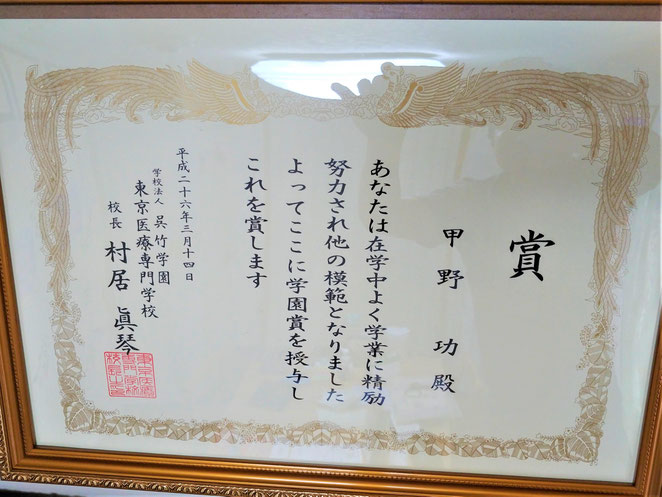 賞
甲野 功殿
あなたは在学中よく学業に精励
努力され他の模範となりました
よってここに学園賞を授与し
これを賞します
平成二十六年三月十四日
学校法人 呉竹学園
東京医療専門学校
校長 村居 眞琴